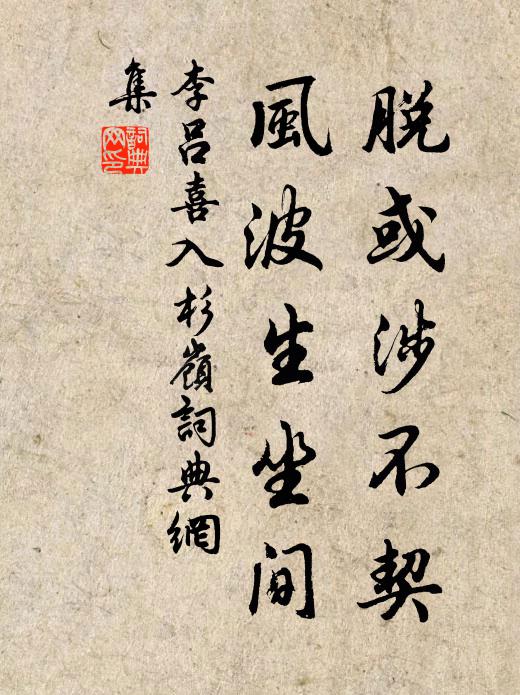 脫或涉不契
風波生坐間
李呂喜入杉嶺詞典網
集
詞典
网印